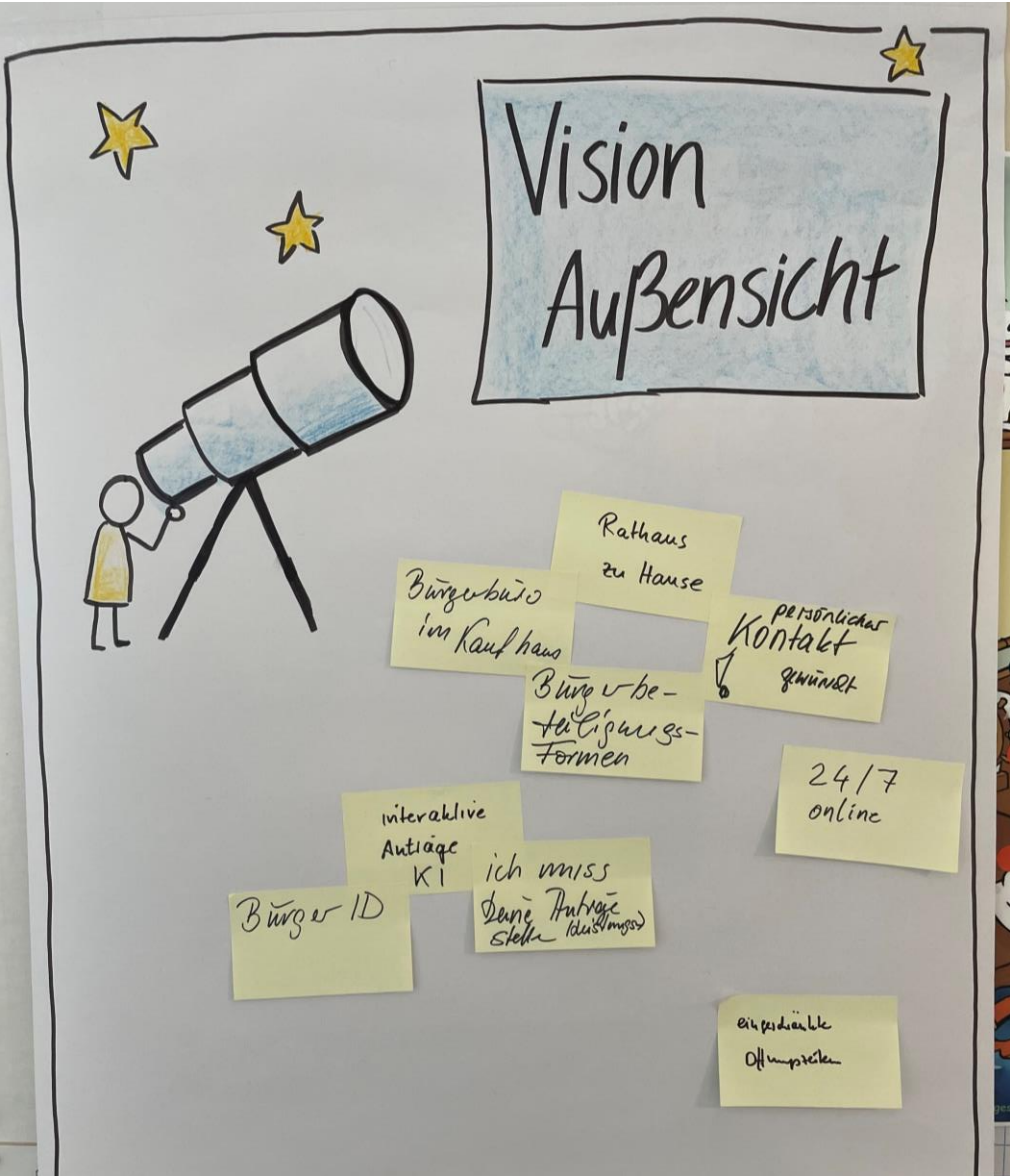 Vision
Außensicht
Rathaus
zu Hause
Bürgerbüro
im Kaufhaus
persönlicher
Kontakt
gewünscht
!
Bürgerbe-
teiligungs-
Formen
24/7
online
interaktive
Anträge
KI
ich muss
keine Anträge
stellen
Bürger ID
eingeschränkte
Öffnungszeiten